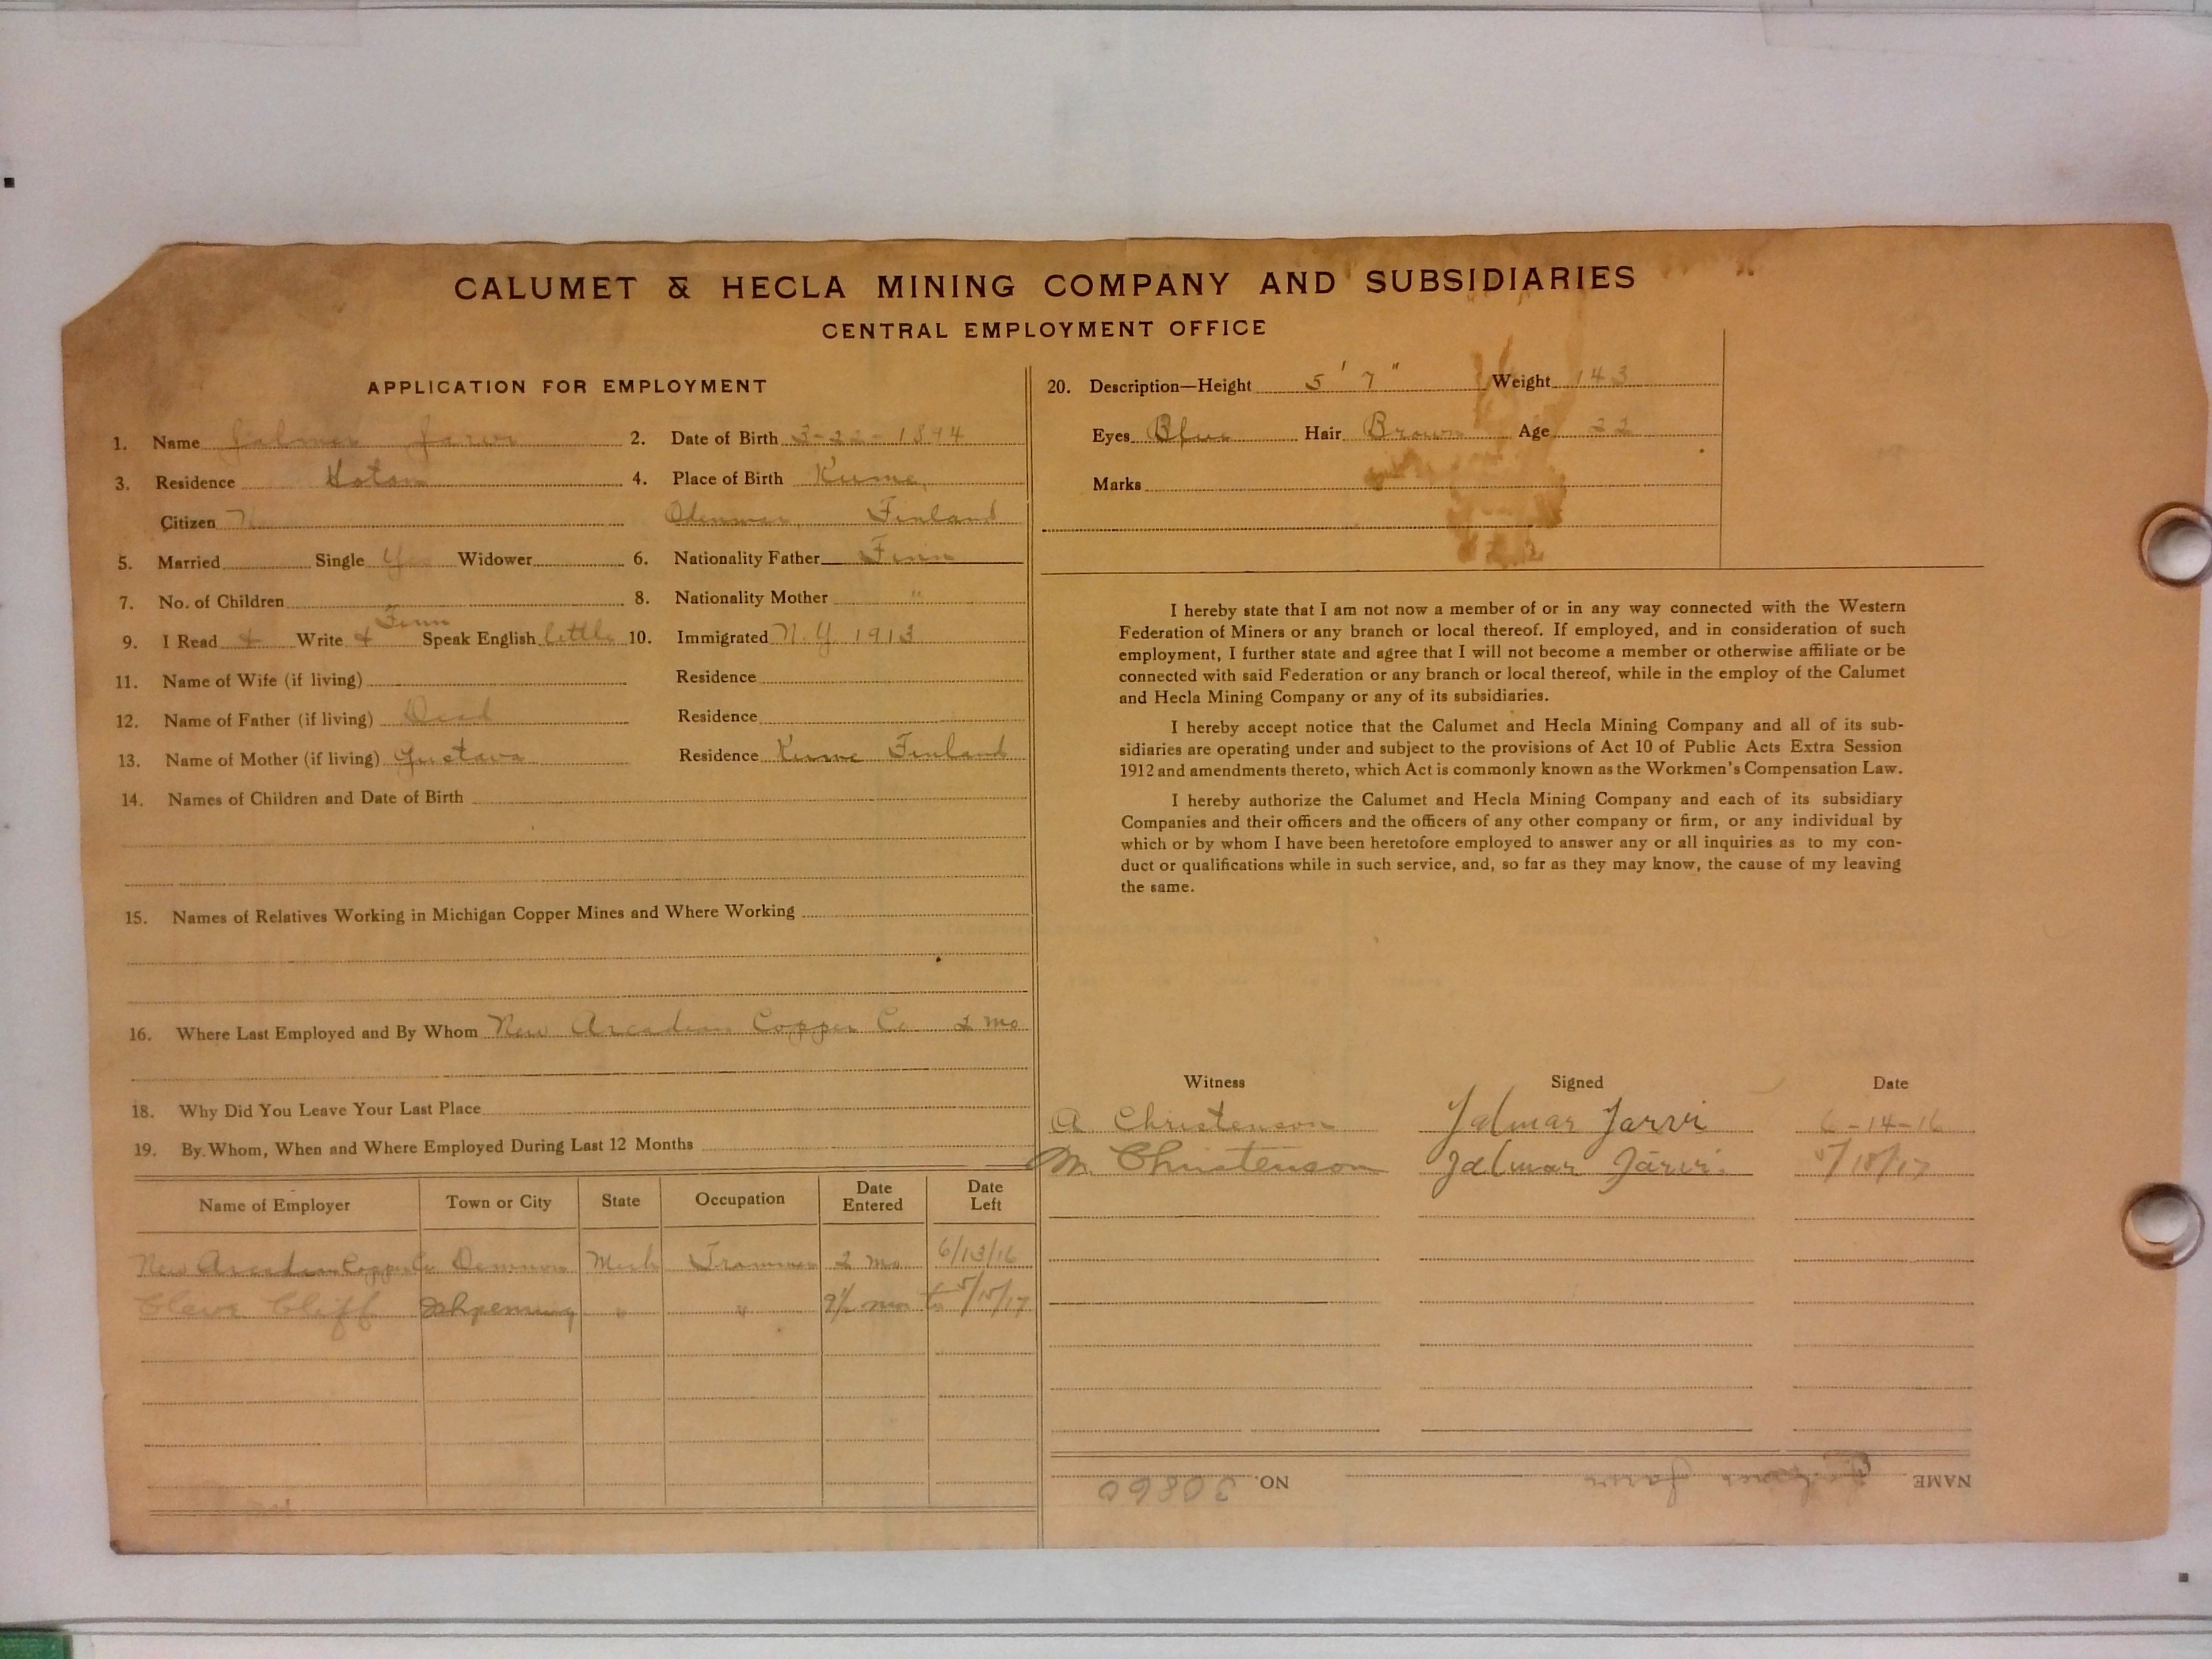 CALUMET & HECLA MINING COMPANY AND SUBSIDIARIES
CENTRAL EMPLOYMENT OFFICE
APPLICATION FOR EMPLOYMENT
1. Name Jalmar Jarvi 2. Date of Birth 3-22-1894
3. Residence Hoton 4. Place of Birth Kumo,
Citizen N Finland
5. Married Single Yes Widower 6. Nationality Father Finn
7. No. of Children 8. Nationality Mother "
Finn
9. I Read + Write + Speak English little 10. Immigrated N.Y. 1913
11. Name of Wife (if living) Residence
12. Name of Father (if living) Dead Residence
13. Name of Mother (if living) Gustava Residence Kumo Finland
14. Names of Children and Date of Birth
15. Names of Relatives Working in Michigan Copper Mines and Where Working
16. Where Last Employed and By Whom New Arcadian Copper Co 2 mo
18. Why Did You Leave Your Last Place
19. By Whom, When and Where Employed During Last 12 Months
Name of Employer Town or City State Occupation Date Entered Date Left
New Arcadian Copper Co Mich Trammer 2 mo 6/13/16
Cleve Cliff Ishpeming " " 9½ mos to 5/15/17
20. Description—Height 5' 7" Weight 143
Eyes Blue Hair Brown Age 22
Marks
I hereby state that I am not now a member of or in any way connected with the Western
Federation of Miners or any branch or local thereof. If employed, and in consideration of such
employment, I further state and agree that I will not become a member or otherwise affiliate or be
connected with said Federation or any branch or local thereof, while in the employ of the Calumet
and Hecla Mining Company or any of its subsidiaries.
I hereby accept notice that the Calumet and Hecla Mining Company and all of its sub-
sidiaries are operating under and subject to the provisions of Act 10 of Public Acts Extra Session
1912 and amendments thereto, which Act is commonly known as the Workmen's Compensation Law.
I hereby authorize the Calumet and Hecla Mining Company and each of its subsidiary
Companies and their officers and the officers of any other company or firm, or any individual by
which or by whom I have been heretofore employed to answer any or all inquiries as to my con-
duct or qualifications while in such service, and, so far as they may know, the cause of my leaving
the same.
Witness Signed Date
A Christenson Jalmar Jarvi 6-14-16
M. Christenson Jalmar Järvi. 5/18/17
NAME Jalmar Jarvi NO. 30860